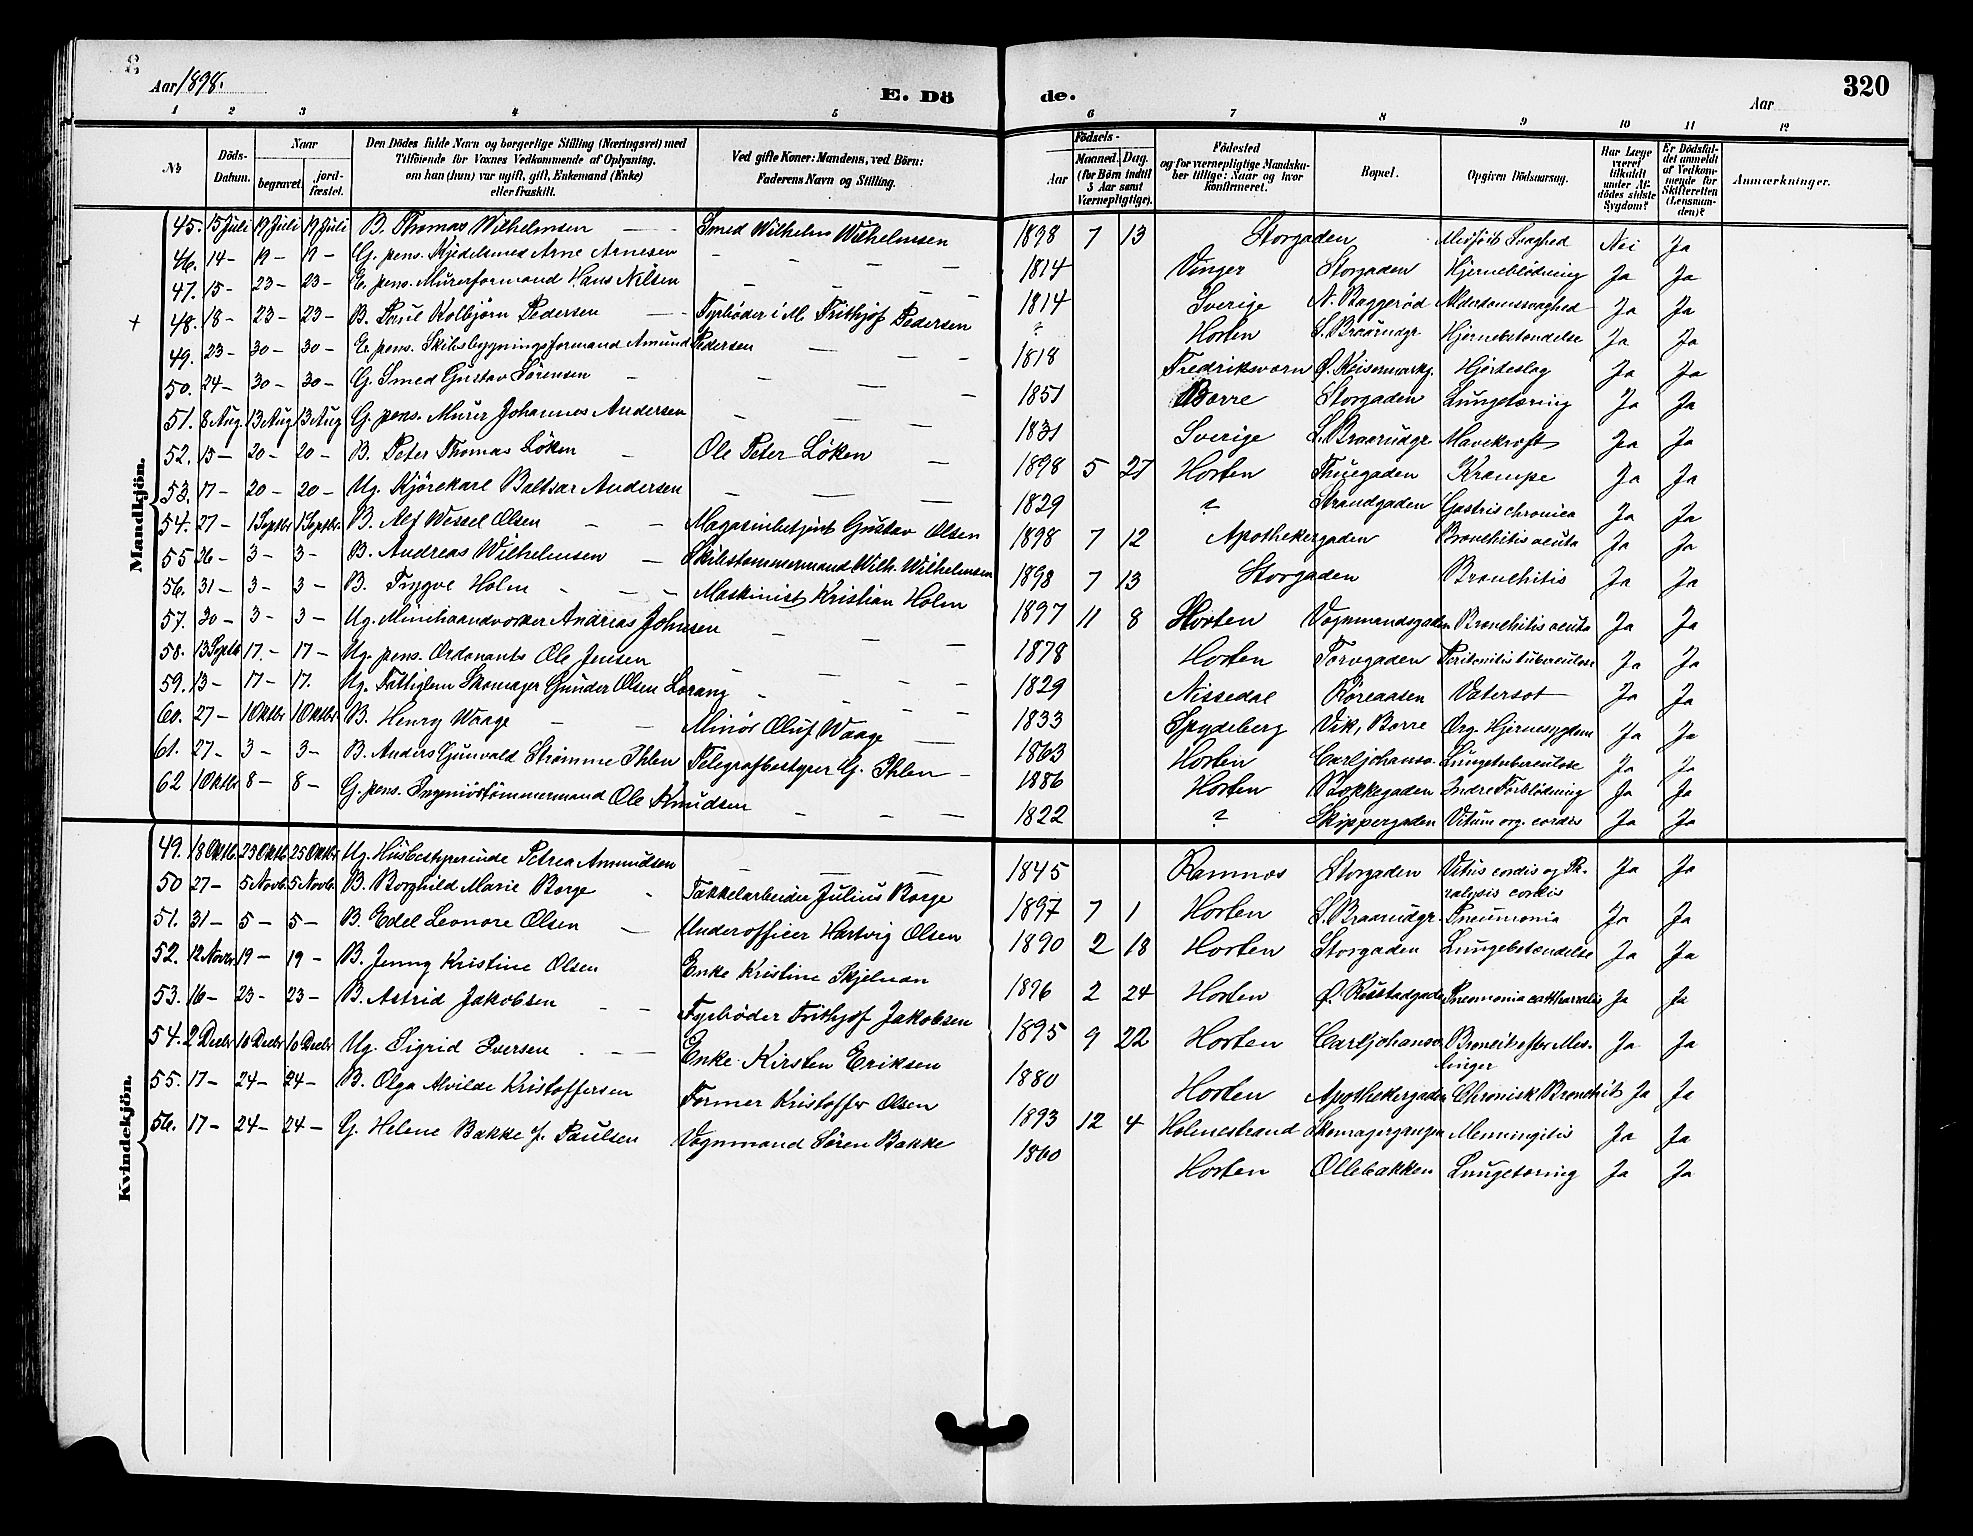 Aar 1898.
E. Dö
de.
320
Aar
1 2 3 4 5 6 7 8 9 10 11 12
No
Döds-Datum.
Naar
begravet.
jord-fæstet.
Den Dödes fulde Navn og borgerlige Stilling (Næringsvei) med
Tilföiende for Voxnes Vedkommende af Oplysning,
om han (hun) var ugift, gift, Enkemand (Enke)
eller fraskilt.
Ved gifte Koner: Mandens, ved Börn:
Faderens Navn og Stilling.
Födsels-
Aar
Maaned. Dag.
(for Börn indtil
Aar samt
Værnepligtige).
Födested
og for værnepligtige Mandska-
ber tillige: Naar og hvor
konfirmeret.
Bopæl.
Opgiven Dödsaarsag.
Har Læge
været
tilkaldt
under Af-
dödes sidste
Sygdom?
Er Dödsfal-
det anmeldt
af Vedkom-
mende for
Skifteretten
(Lensman-
den)?
Anmærkninger.
Mandkjön.
45. 15 Juli 19 Juli 19 Juli B. Thomas Wilhelmsen Smed Wilhelm Wilhelmsen 1898 7 13 Storgaden Medfödt Svaghed Nei Ja
46. 14 - 19 - 19 - G. pens. Kjedelsmed Arne Arnesen 1814 Vinger Storgaden Hjerneblödning Ja Ja
47. 15 - 23 - 23 - E. pens. Murerformand Hans Nilsen 1814 Sverige N. Baggeröd Alderdomssvaghed Ja Ja
+ 48. 18 - 23 - 23 - B. Poul Kolbjörn Pedersen Fyrböder i M. Frithjof Pedersen ? Horten L. Braarudgr. Hjernebetændelse Ja Ja
49. 23 - 30 - 30 - E. pens. Skibsbygningsformand Amund Pedersen 1818 Fredriksværn Ø. Keisermarkg. Hjerteslag Ja Ja
50. 24 - 30 - 30 - G. Smed Gustav Sörensen 1851 Borre Storgaden Lungetæring Ja Ja
51. 8 Aug. 13 Aug 13 Aug G. pens. Murer Johannes Andersen 1831 Sverige L. Braarudgr Mavekræft Ja Ja
52. 15 - 20 - 20 - B. Peter Thomas Löken Ole Peter Löken 1898 5 27 Horten Thuegaden Krampe Ja Ja
53. 17 - 20 - 20 - Ug. Kjörekarl Baltsar Andersen 1829 ? Strandgaden Gastris chronica Ja Ja
54. 27 - 1 Septbr 1 Septbr. B. Alf Wessel Olsen Magasinbetjent Gustav Olsen 1898 7 12 Apothekergaden Bronchitis acuta Ja Ja
55 26 - 3 - 3 - B. Andreas Wilhelmsen Skibstømmermand Wilh. Wilhelmsen 1898 7 13 Storgaden Bronchitis Ja Ja
56. 31 - 3 - 3 - B. Trygve Holm Maskinist Kristian Holm 1897 11 8 Horten Vognmandsgaden Bronchitis acuta Ja Ja
57. 30 - 3 - 3 - Ug. Minehaandværker Andreas Johnsen 1878 Horten Torvgaden Peritonitis tuberculose Ja Ja
58. 13 Septbr 17. - 17 - Ug. pens. Ordonants Ole Jensen 1829 Nissedal Röreaasen Vatersot Ja Ja
59. 13 - 17 - 17. Ug. Fattiglem Skomager Gunder Olsen Lorang 1833 Spydeberg Vik, Borre Org. Hjernesygdom Ja Ja
60. 27 - 1 Oktbr 1 Oktbr. B. Henry Waage Minör Oluf Waage 1863 Horten Carljohansv. Lungetuberculose Ja Ja
61. 27 - 3 - 3 - B. Anders Gunvald Strömme Ihlen Telegrafbestyrer G. Ihlen 1886 Horten Blokkegaden Indre Forblödning Ja Ja
62 1 Oktbr 8 - 8 - G. pens. Ingeniörtömmermand Ole Knudsen 1822 ? Skippergaden Vitium org. cordis Ja Ja
Kvindekjön.
49. 18 Oktb. 25 Oktb 25 Oktbr Ug. Husbestyrerinde Petrea Amundsen 1845 Ramnes Storgaden Vitus cordis og Pa-
ralysis cordis Ja Ja
50 27 - 5 Novb. 5 Novb. B. Borghild Marie Borge Takkelarbeider Julius Borge 1897 7 1 Horten L. Braarudgr. Pneumonia Ja Ja
51. 31 - 5 - 5 - B. Edel Leonore Olsen Underofficer Hartvig Olsen 1890 2 18 Horten Storgaden Lungebetændelse Ja Ja
52. 12 Novbr. 19 - 19 - B. Jenny Kristine Olsen Enke Kristine Skjelnan 1896 2 24 Horten Ø. Rustadgaden Pneumonia catharralis Ja Ja
53. 16 - 23 - 23 - B. Astrid Jakobsen Fyrböder Frithjof Jakobsen 1895 9 22 Horten Carljohansv Broncit efter Mes-
linger Ja Ja
54. 2 Decbr 10 Decbr 10 Decbr Ug. Sigrid Iversen Enke Kirsten Eriksen 1880 Horten Apothekergaden Chronisk Bronchit Ja Ja
55. 17 - 24 - 24 - B. Olga Alvilde Kristoffersen Former Kristoffer Olsen 1893 12 4 Holmestrand Skomagergangen Menningitis Ja Ja
56. 17 - 24 - 24 - G. Helene Bakke f. Paulsen Vognmand Sören Bakke 1860 Horten Ollebakken Lungetæring Ja Ja